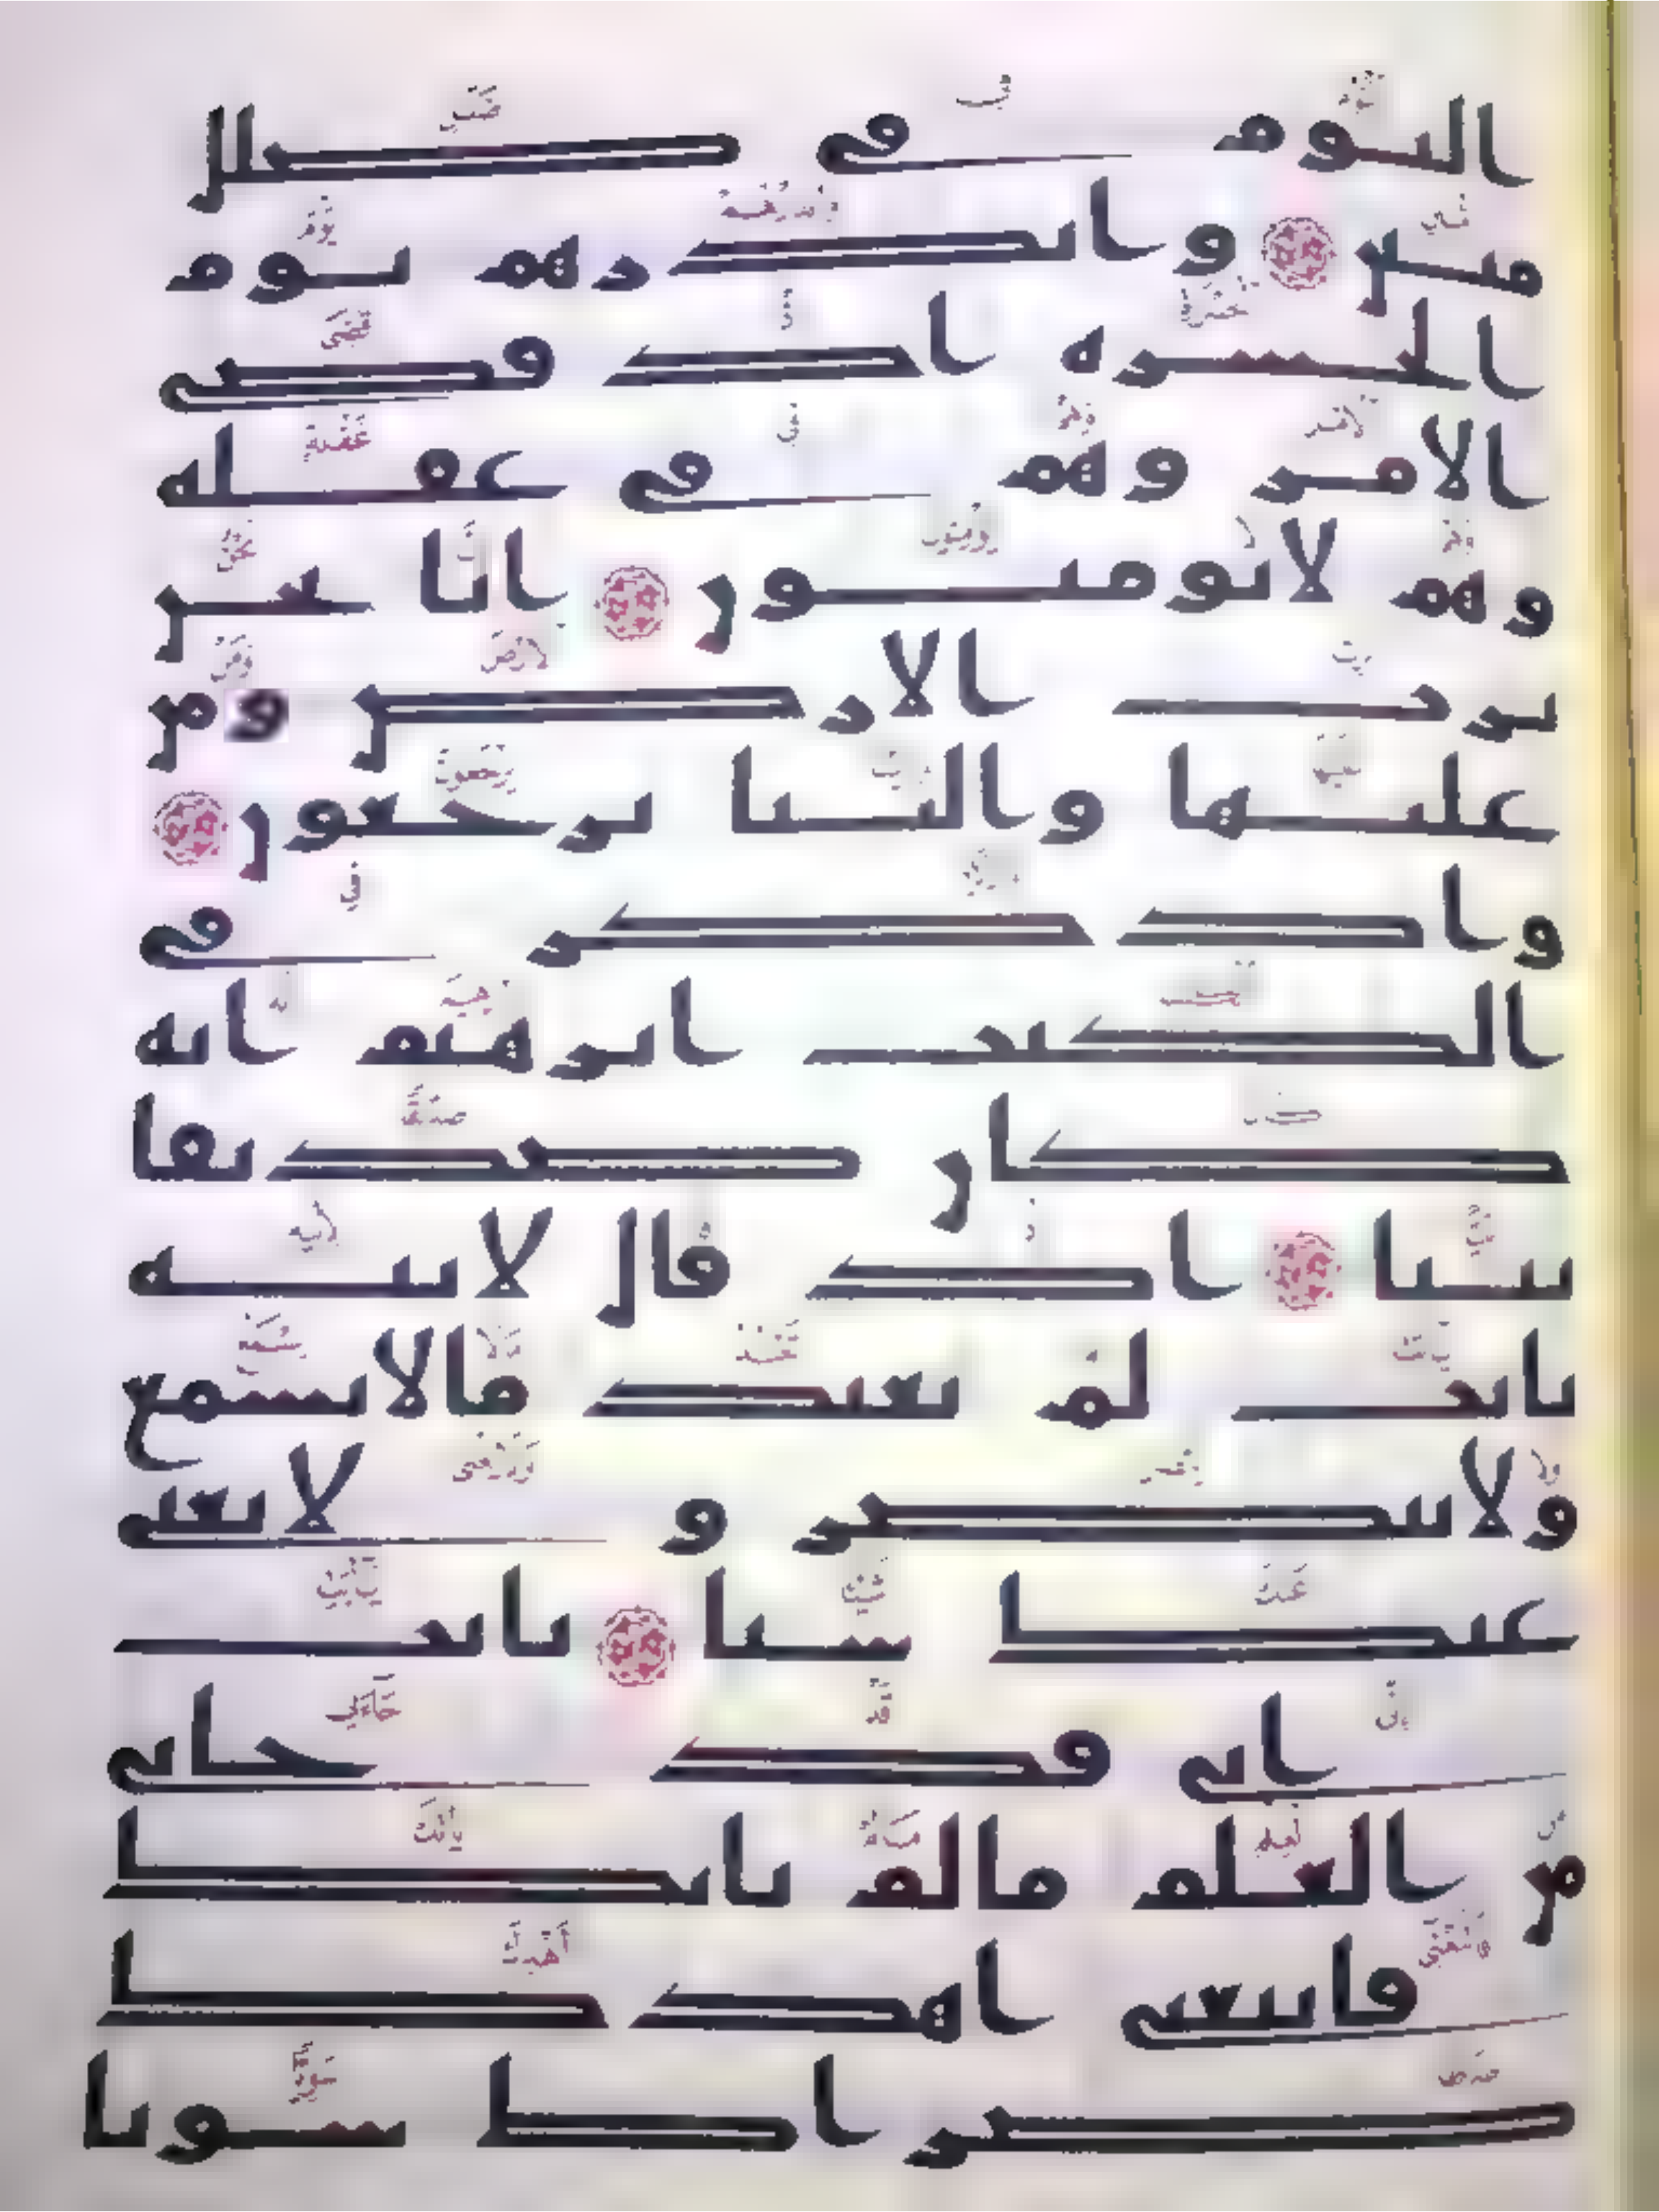 اليوم في ضلل
مبين وانذرهم يوم
الحسره اذ قضي
الامر وهم في غفله
وهم لا يومنون انا نحن
نرث الارض ومن
عليها والينا يرجعون
واذكر في
الكتب ابرهيم انه
كان صديقا
نبيا اذ قال لابيه
يابت لم تعبد مالا يسمع
ولا يبصر ولا يغني
عنك شيا يابت
اني قد جاني
من العلم مالم ياتك
فاتبعني اهدك
صراطا سويا